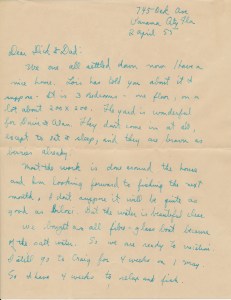 745 Oak Ave
Panama City Fla
2 April 57
Dear Dick & Dad:
We are all settled down now & have a
nice home. Lois has told you about it I
suppose - It is 3 bedrooms - one floor, on a
lot about 200 x 200. The yard is wonderful
for Dave & Alan. They don't come in at all,
except to eat & sleep, and they are brown as
berries already.
Most the work is done around the house
and I'm looking forward to fishing the next
month, I don't suppose it will be quite as
good as before. But the water is beautiful clear.
We bought an all fibre-glass boat because
of the salt water. So we are ready to
I still go to Craig for 4 weeks on 1 May.
So I have 4 weeks to relax and fish.